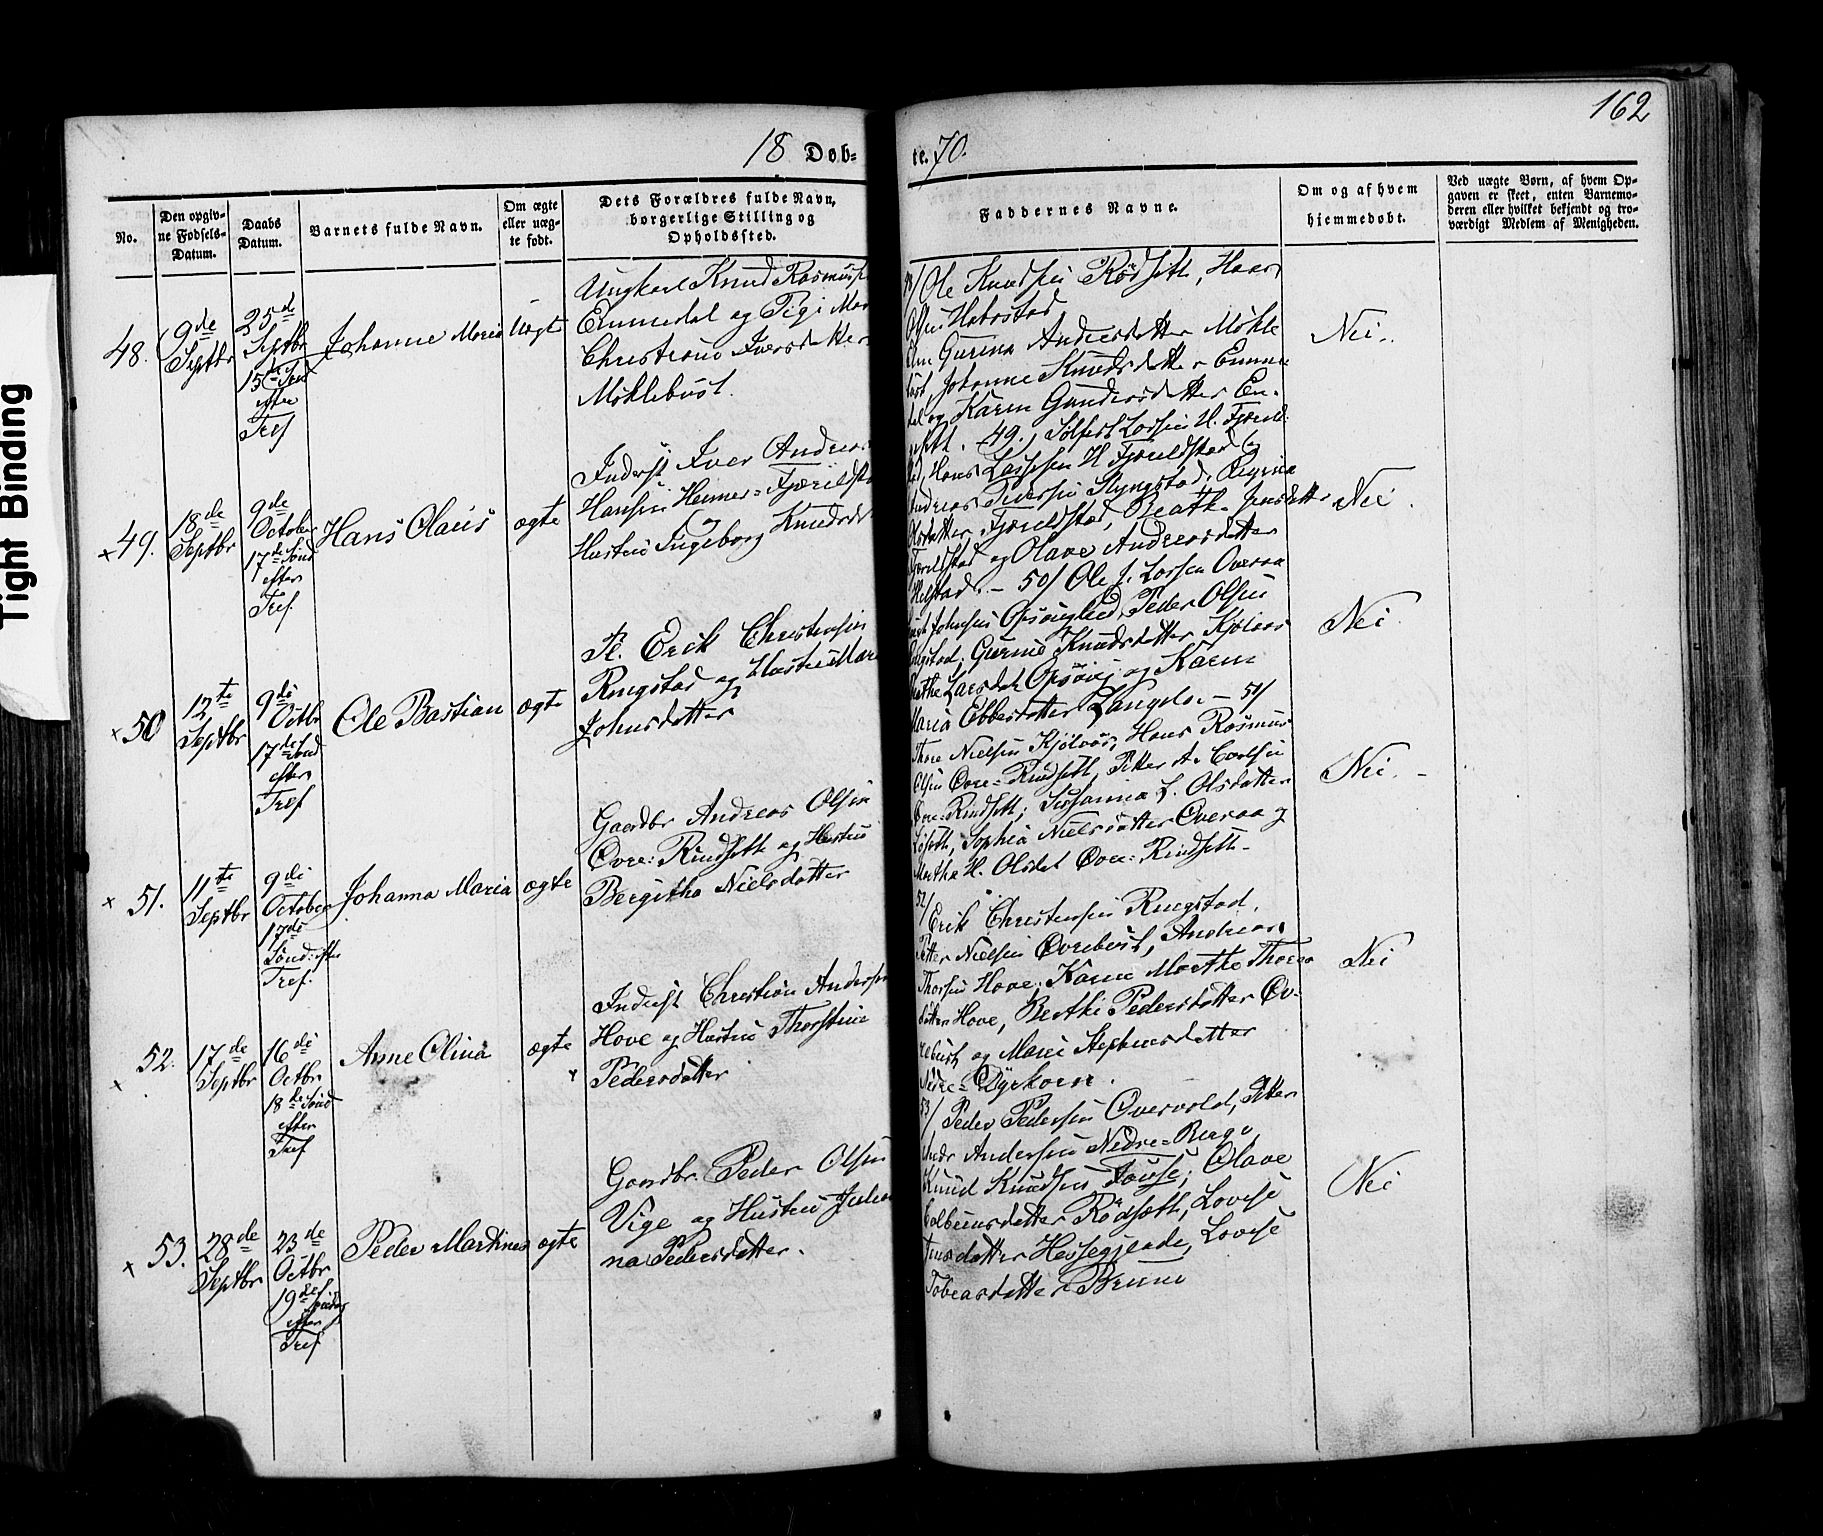 162
18 Døb-
te. 70.
No.
Den opgiv-
ne Fødsels-
Datum.
Daabs
Datum.
Barnets fulde Navn.
Om ægte
eller uæg-
te født.
Dets Forældres fulde Navn,
borgerlige Stilling og
Opholdssted.
Faddernes Navne.
Om og af hvem
hjemmedøbt.
Ved uægte Børn, af hvem Op-
gaven er skeet, enten Barnemo-
deren eller hvilket bekjendt og tro-
værdigt Medlem af Menigheden.
48.
9de
Septbr
25de
Septbr
15de Sønd
efter
Tref
Johanne Maria
Uægte
Ungkarl Knud Rasmus
Emmedal og Pige
Christine Iversdatter
Møklebust.
Ole Knudsen Rødseth, Hans
Olsen Habostad
Gurina Andersdatter Møkle
bust, Johanne Knudsdatter Emme
dal og Karen Gundersdatter En-
seth.
Nei.
× 49.
18de
Septbr
9de
October
17de Sønd
efter
Tref.
Hans Olaus
ægte
Inderst Iver Andreas
Hansen Hemer-Fjæreldsta
og
Hustru Ingeborg Knudsdt
49., Larsen H. Fjæreld
Hans Lassesen H Fjæreldstad
Andreas Iversen Slyngstad, Regina
Olsdatter Fjæreldstad, Beathe
Fjæreldstad og Olave Andreasdatter
Helstad. -
Nei.
× 50
12te
Septbr
9de
Octbr
17de Sønd
efter
Tref
Ole Bastian
ægte
Pl. Erik Christensen
Ringstad og Hustru Mar
Johnsdatter
50/ Ole J. Larsen Overaa
Johnsen Opsanglied, Peder Olsen
Ringstad; Gurine Knudsdatter Kjølaas
Larsdat. og Karen
Maria Ebbesdatter Langelo. -
Nei.
× 51.
11te
Septbr
9de
October
17de
Sønd: efter
Tref.
Johanna Maria
ægte
Gaardbr Andreas Olsen
Øvre- Rindseth og Hustru
Bergitha Nielsdatter
51/
Thore Nielsen Kjølaas, Hans Rasmus
Olsen Øvre-Rindseth, Petter A. Carlsen
Øvre-Rindseth; Susanna L. Olsdatter
Sophia Nielsdatter Overaa og
Marthe H. Olsdat. Øvre- Rindseth. -
Nei. -
× 52.
17de
Septbr
16de
Octbr
18de Sønd
efter
Tref
Anne Olina
ægte
Inderst Christian Anders
Hove og Hustru Thorstine
Pedersdatter
52/
Erik Christensen Ringstad,
Petter Nielsen Øvrebust, Andreas
Thorsen Hove; Karen Marthe Thores
datter Hove, Berthe Pedersdatter Øv-
rebust og Marie Stephensdatter
Nedre- Dyrkorn.
Nei
× 53.
28de
Septbr
23de
Octbr
19de
Søndag
efter
Tref
Peder Martines
ægte
Gaardbr. Peder Olsen
Vige og Hustru Julia
na Pedersdatter.
53/ Peder Pedersen Overvold, Petter
Andr Andersen Nedre-Berge
Knud Knudsen; Olave
Colbeinsdatter Rødseth, Lovise
datter Hessegjerde, Lovise
Tobiasdatter Brune
Nei
Tight Binding